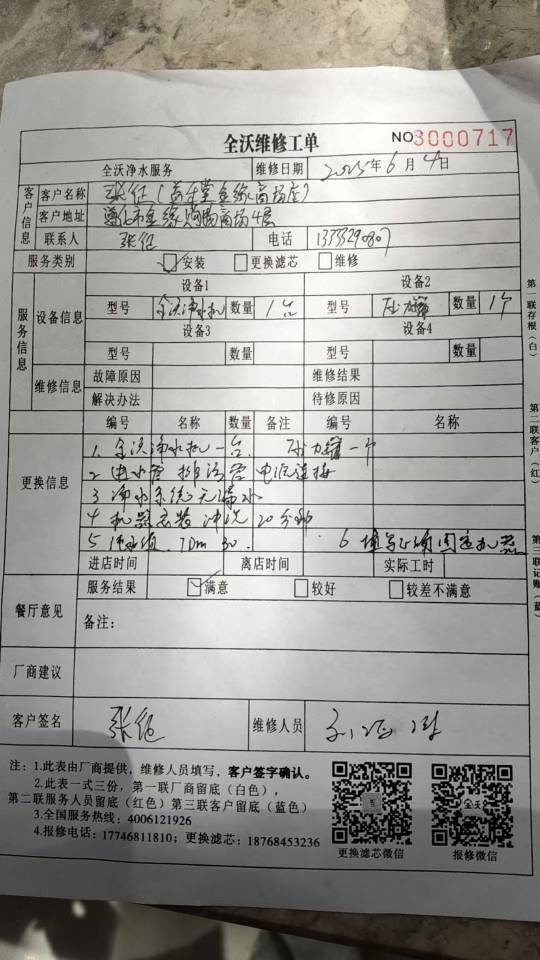 全沃维修工单
NO3000717
全沃净水服务 维修日期 2025年6月4日
客户信息
客户名称 张红(商场店)
客户地址 遵化市金缘购物商场4层
联系人 张红 电话
服务类别 安装 更换滤芯 维修
服务信息
设备信息
设备1 设备2
型号 全沃净水机 数量 1台 型号 压力罐 数量 1个
设备3 设备4
型号 数量 型号 数量
维修信息
故障原因 维修结果
解决办法 待修原因
更换信息
编号 名称 数量 备注 编号 名称
1. 全沃净水机一台. 压力罐一个
2 进水管 排污管 电源连接
3 净水系统无漏水
4 机器安装 冲洗20分钟
5 30. 6
进店时间 离店时间 实际工时
餐厅意见
服务结果 满意 较好 较差不满意
备注:
厂商建议
客户签名 张红 维修人员
注: 1.此表由厂商提供, 维修人员填写, 客户签字确认。
2.此表一式三份, 第一联厂商留底(白色),
第二联服务人员留底(红色)第三联客户留底(蓝色)
3.全国服务热线: 4006121926
4.报修电话: 17746811810; 更换滤芯: 18768453236
更换滤芯微信 报修微信
第一联存根(白)
第二联客户(红)
第三联记账(蓝)